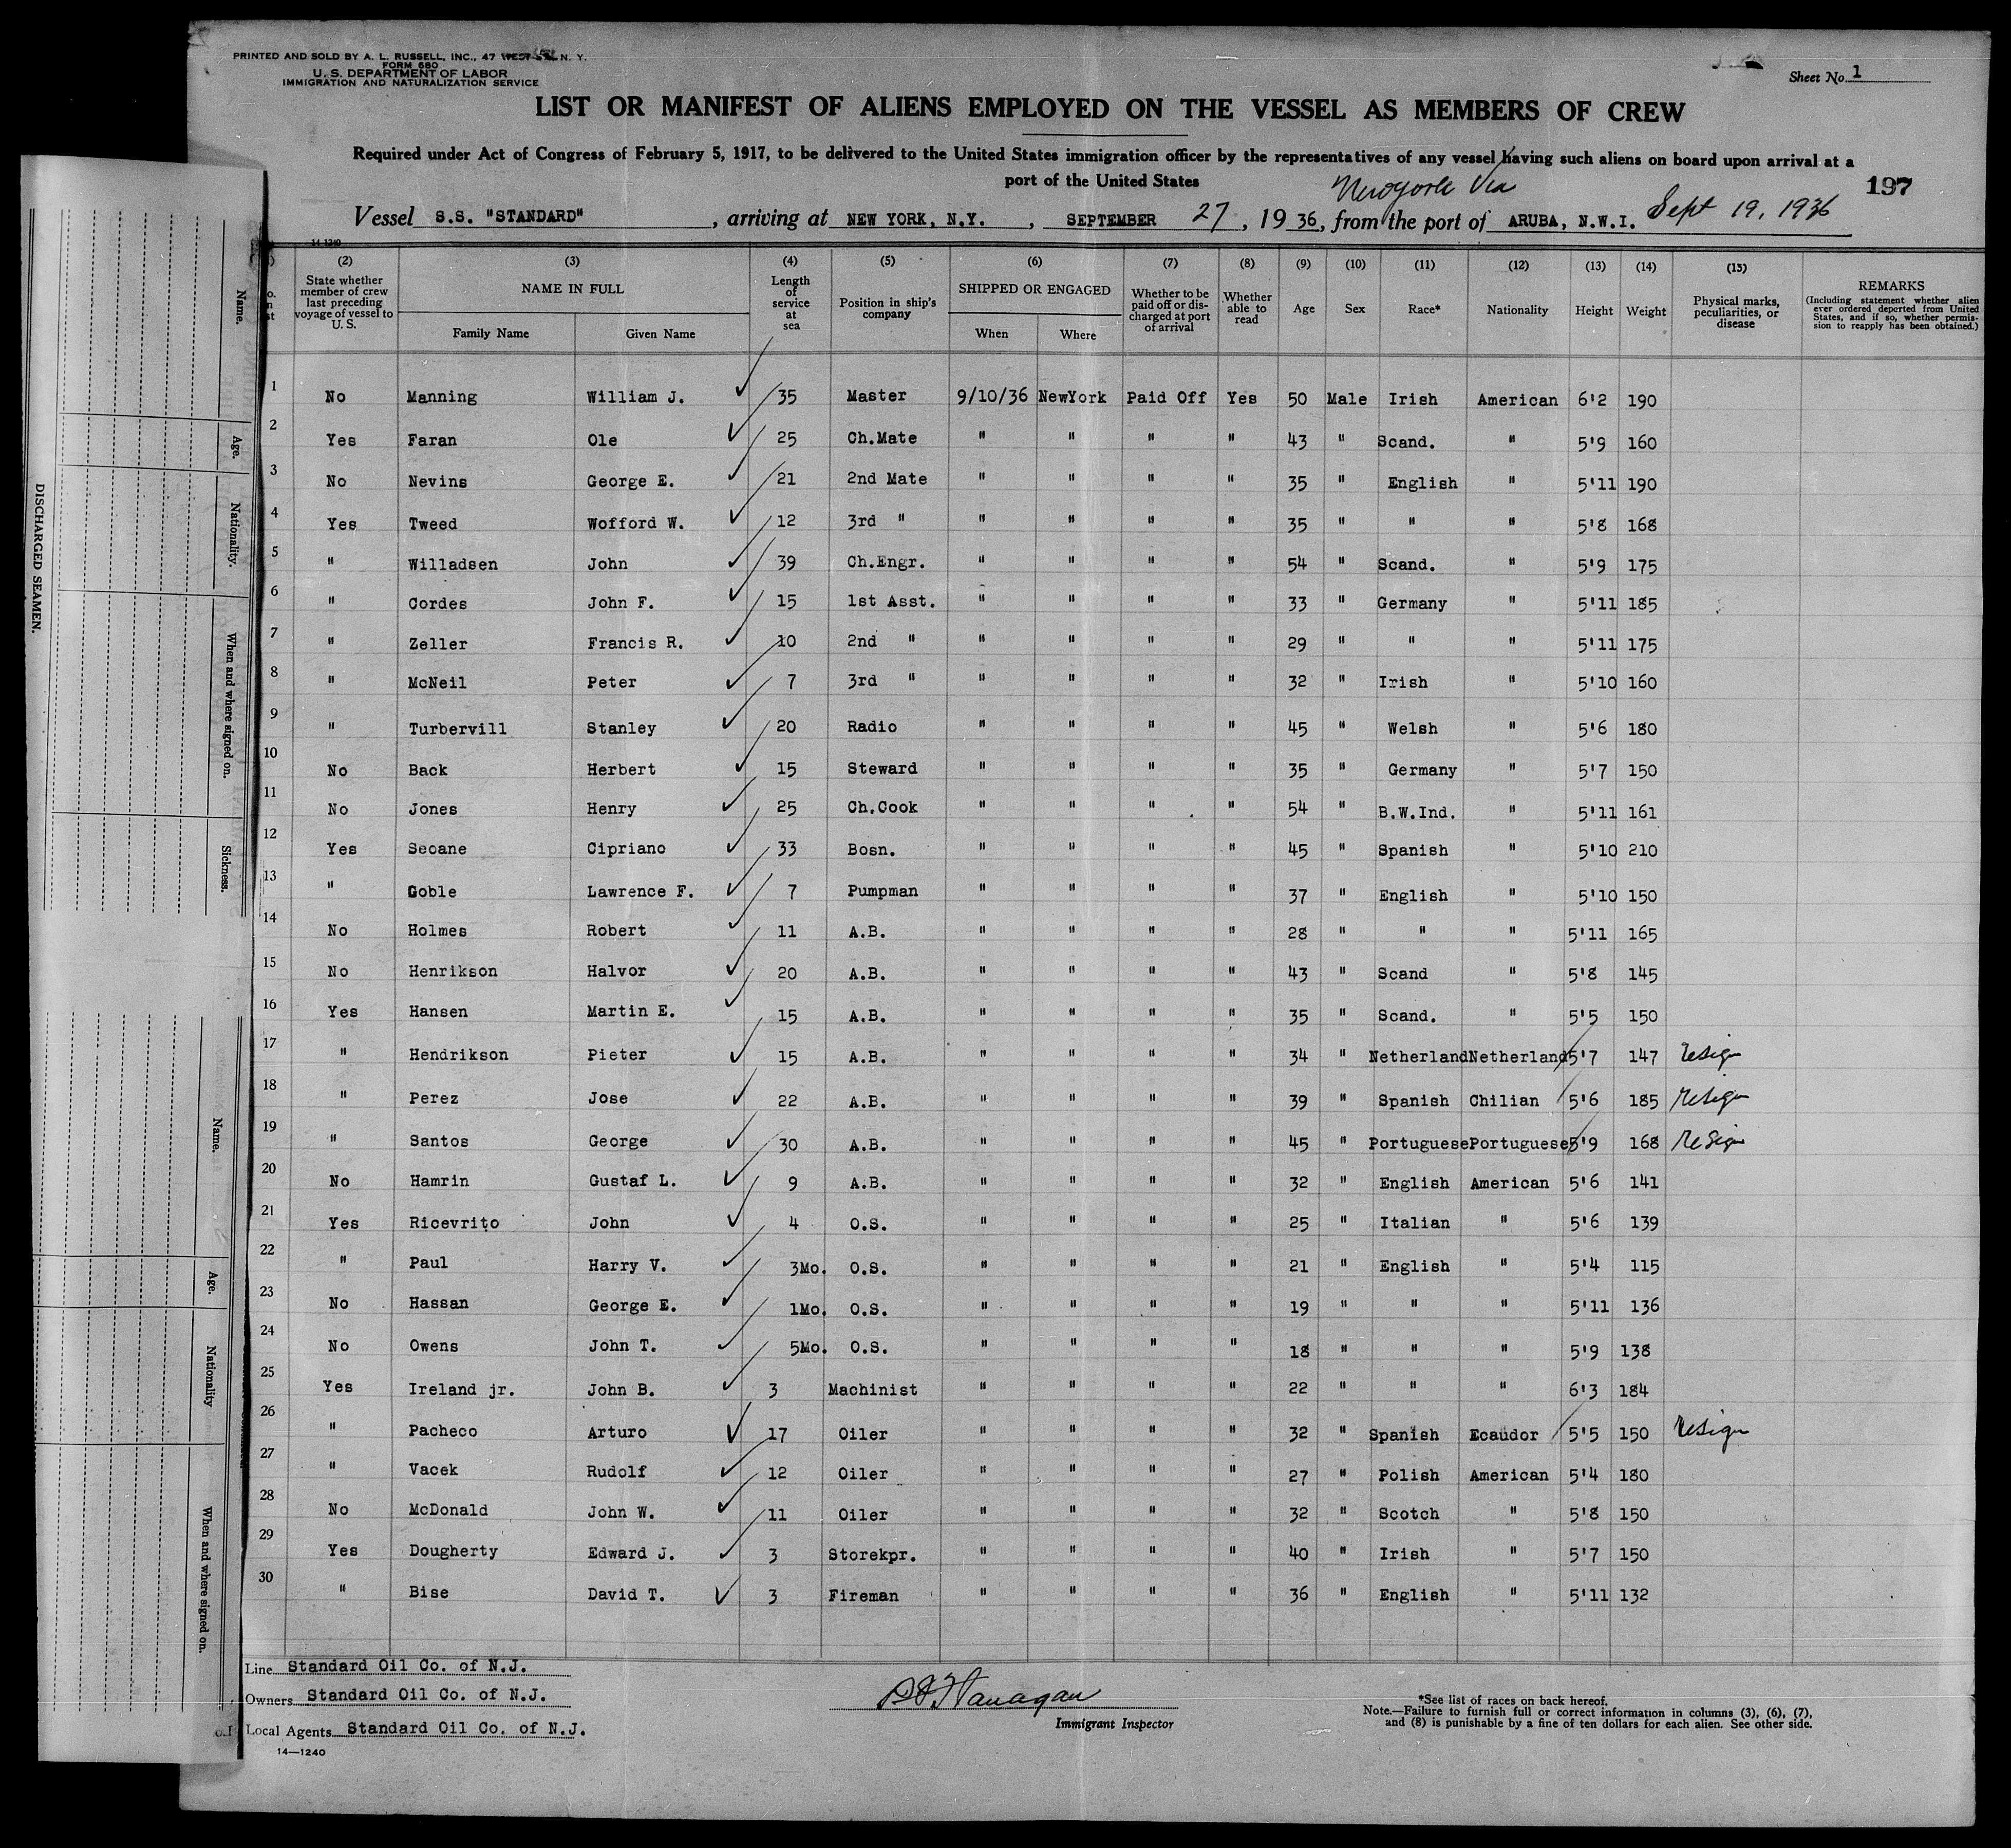 PRINTED AND SOLD BY A. L. RUSSELL, INC., 47 WEST ST., N. Y.
FORM 680
U. S. DEPARTMENT OF LABOR
IMMIGRATION AND NATURALIZATION SERVICE
Sheet No. 1
LIST OR MANIFEST OF ALIENS EMPLOYED ON THE VESSEL AS MEMBERS OF CREW
Required under Act of Congress of February 5, 1917, to be delivered to the United States immigration officer by the representatives of any vessel having such aliens on board upon arrival at a
port of the United States
197
New York Via
Vessel S.S. "STANDARD", arriving at NEW YORK, N.Y., SEPTEMBER 27, 19 36, from the port of ARUBA, N.W.I. Sept 19, 1936
14-1240
(2) (3) (4) (5) (6) (7) (8) (9) (10) (11) (12) (13) (14) (15)
State whether member of crew last preceding voyage of vessel to U. S. NAME IN FULL Family Name Given Name Length of service at sea Position in ship's company SHIPPED OR ENGAGED When Where Whether to be paid off or discharged at port of arrival Whether able to read Age Sex Race* Nationality Height Weight Physical marks, peculiarities, or disease REMARKS (Including statement whether alien ever ordered deported from United States, and if so, whether permission to reapply has been obtained.)
1 No Manning William J. 35 Master 9/10/36 NewYork Paid Off Yes 50 Male Irish American 6'2 190
2 Yes Faran Ole 25 Ch.Mate " " " " 43 " Scand. " 5'9 160
3 No Nevins George E. 21 2nd Mate " " " " 35 " English " 5'11 190
4 Yes Tweed Wofford W. 12 3rd " " " " " 35 " " " 5'8 168
5 " Willadsen John 39 Ch.Engr. " " " " 54 " Scand. " 5'9 175
6 " Cordes John F. 15 1st Asst. " " " " 33 " Germany " 5'11 185
7 " Zeller Francis R. 10 2nd " " " " " 29 " " " 5'11 175
8 " McNeil Peter 7 3rd " " " " " 32 " Irish " 5'10 160
9 " Turbervill Stanley 20 Radio " " " " 45 " Welsh " 5'6 180
10 No Back Herbert 15 Steward " " " " 35 " Germany " 5'7 150
11 No Jones Henry 25 Ch.Cook " " " " 54 " B.W.Ind. " 5'11 161
12 Yes Seoane Cipriano 33 Bosn. " " " " 45 " Spanish " 5'10 210
13 " Goble Lawrence F. 7 Pumpman " " " " 37 " English " 5'10 150
14 No Holmes Robert 11 A.B. " " " " 28 " " " 5'11 165
15 No Henrikson Halvor 20 A.B. " " " " 43 " Scand " 5'8 145
16 Yes Hansen Martin E. 15 A.B. " " " " 35 " Scand. " 5'5 150
17 " Hendrikson Pieter 15 A.B. " " " " 34 " Netherland Netherland 5'7 147 Resign
18 " Perez Jose 22 A.B. " " " " 39 " Spanish Chilian 5'6 185 Resign
19 " Santos George 30 A.B. " " " " 45 " Portuguese Portuguese 5'9 168 ReSign
20 No Hamrin Gustaf L. 9 A.B. " " " " 32 " English American 5'6 141
21 Yes Ricevrito John 4 O.S. " " " " 25 " Italian " 5'6 139
22 " Paul Harry V. 3Mo. O.S. " " " " 21 " English " 5'4 115
23 No Hassan George E. 1Mo. O.S. " " " " 19 " " " 5'11 136
24 No Owens John T. 5Mo. O.S. " " " " 18 " " " 5'9 138
25 Yes Ireland jr. John B. 3 Machinist " " " " 22 " " " 6'3 184
26 " Pacheco Arturo 17 Oiler " " " " 32 " Spanish Ecaudor 5'5 150 Resign
27 " Vacek Rudolf 12 Oiler " " " " 27 " Polish American 5'4 180
28 No McDonald John W. 11 Oiler " " " " 32 " Scotch " 5'8 150
29 Yes Dougherty Edward J. 3 Storekpr. " " " " 40 " Irish " 5'7 150
30 " Bise David T. 3 Fireman " " " " 36 " English " 5'11 132
Line Standard Oil Co. of N.J.
Owners Standard Oil Co. of N.J.
Local Agents Standard Oil Co. of N.J.
14—1240
Flanagan
Immigrant Inspector
*See list of races on back hereof.
Note.—Failure to furnish full or correct information in columns (3), (6), (7),
and (8) is punishable by a fine of ten dollars for each alien. See other side.
DISCHARGED SEAMEN.
Name.
Age.
Nationality.
When and where signed on.
Sickness.
Name.
Age.
Nationality
When and where signed on.